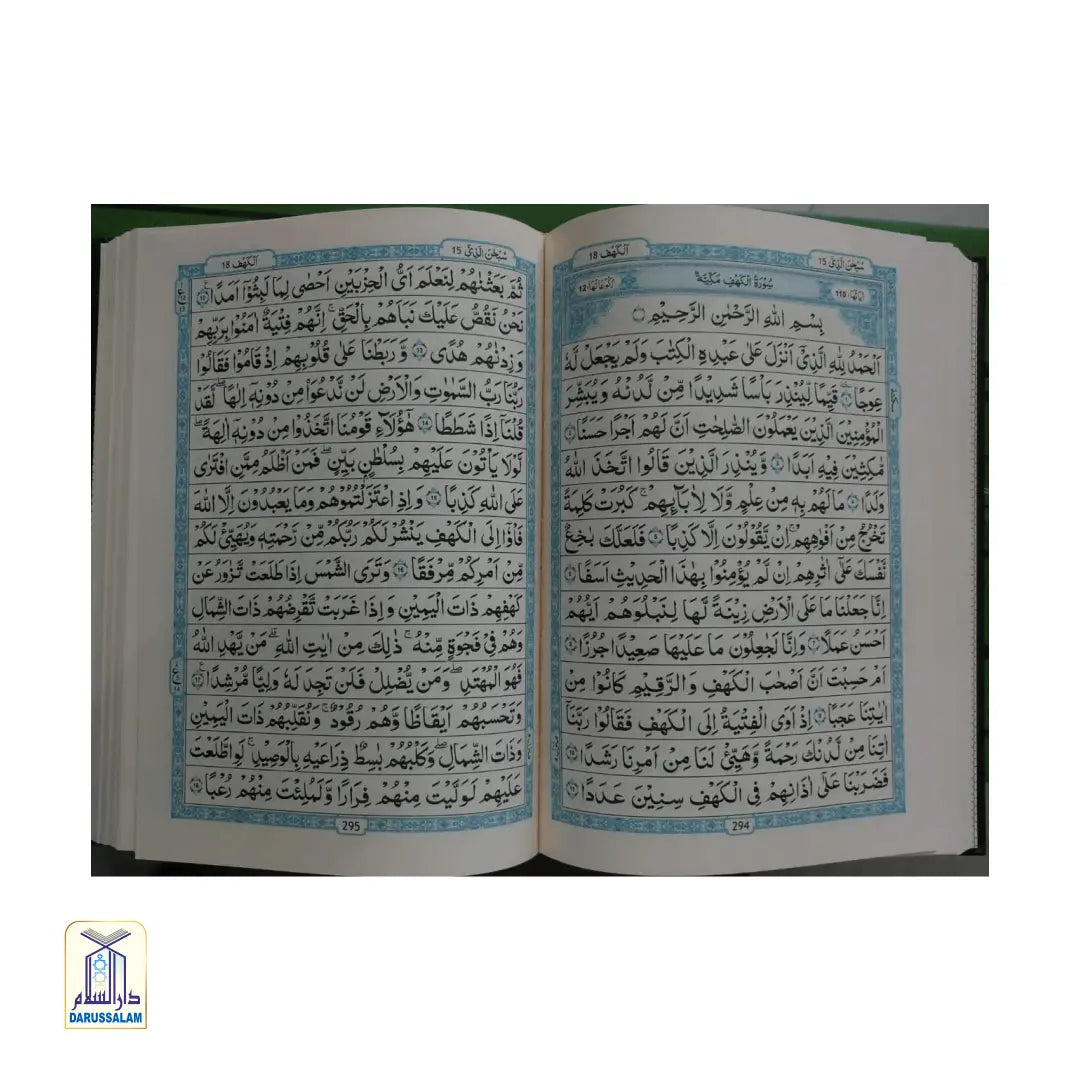 سُبْحٰنَ الَّذِيْۤ 15
اَلْكَهْف 18
اٰيَاتُهَا 110
سُوْرَةُ الْكَهْفِ مَكِّيَّةٌ
رُكُوْعَاتُهَا 12
بِسْمِ اللّٰهِ الرَّحْمٰنِ الرَّحِيْمِ
اَلْحَمْدُ لِلّٰهِ الَّذِيْۤ اَنْزَلَ عَلٰى عَبْدِهِ الْكِتٰبَ وَلَمْ يَجْعَلْ لَّهٗ
عِوَجًا ۱ قَيِّمًا لِّيُنْذِرَ بَاْسًا شَدِيْدًا مِّنْ لَّدُنْهُ وَيُبَشِّرَ
الْمُؤْمِنِيْنَ الَّذِيْنَ يَعْمَلُوْنَ الصّٰلِحٰتِ اَنَّ لَهُمْ اَجْرًا حَسَنًا ۲
مّٰكِثِيْنَ فِيْهِ اَبَدًا ۳ وَّيُنْذِرَ الَّذِيْنَ قَالُوا اتَّخَذَ اللّٰهُ
وَلَدًا ۴ مَا لَهُمْ بِهٖ مِنْ عِلْمٍ وَّلَا لِاٰبَآئِهِمْ ؕ كَبُرَتْ كَلِمَةً
تَخْرُجُ مِنْ اَفْوَاهِهِمْ ؕ اِنْ يَّقُوْلُوْنَ اِلَّا كَذِبًا ۵ فَلَعَلَّكَ بَاخِعٌ
نَّفْسَكَ عَلٰۤى اٰثَارِهِمْ اِنْ لَّمْ يُؤْمِنُوْا بِهٰذَا الْحَدِيْثِ اَسَفًا ۶
اِنَّا جَعَلْنَا مَا عَلَى الْاَرْضِ زِيْنَةً لَّهَا لِنَبْلُوَهُمْ اَيُّهُمْ
اَحْسَنُ عَمَلًا ۷ وَاِنَّا لَجٰعِلُوْنَ مَا عَلَيْهَا صَعِيْدًا جُرُزًا ۸
اَمْ حَسِبْتَ اَنَّ اَصْحٰبَ الْكَهْفِ وَالرَّقِيْمِ كَانُوْا مِنْ
اٰيٰتِنَا عَجَبًا ۹ اِذْ اَوَى الْفِتْيَةُ اِلَى الْكَهْفِ فَقَالُوْا رَبَّنَاۤ
اٰتِنَا مِنْ لَّدُنْكَ رَحْمَةً وَّهَيِّئْ لَنَا مِنْ اَمْرِنَا رَشَدًا ۱۰
فَضَرَبْنَا عَلٰۤى اٰذَانِهِمْ فِي الْكَهْفِ سِنِيْنَ عَدَدًا ۱۱
294
سُبْحٰنَ الَّذِيْۤ 15
اَلْكَهْف 18
ثُمَّ بَعَثْنٰهُمْ لِنَعْلَمَ اَيُّ الْحِزْبَيْنِ اَحْصٰى لِمَا لَبِثُوْۤا اَمَدًا ۱۲
نَحْنُ نَقُصُّ عَلَيْكَ نَبَاَهُمْ بِالْحَقِّ ؕ اِنَّهُمْ فِتْيَةٌ اٰمَنُوْا بِرَبِّهِمْ
وَزِدْنٰهُمْ هُدًى ۱۳ وَّرَبَطْنَا عَلٰى قُلُوْبِهِمْ اِذْ قَامُوْا فَقَالُوْا
رَبُّنَا رَبُّ السَّمٰوٰتِ وَالْاَرْضِ لَنْ نَّدْعُوَا۠ مِنْ دُوْنِهٖۤ اِلٰهًا لَّقَدْ
قُلْنَاۤ اِذًا شَطَطًا ۱۴ هٰۤؤُلَآءِ قَوْمُنَا اتَّخَذُوْا مِنْ دُوْنِهٖۤ اٰلِهَةً ؕ
لَوْلَا يَاْتُوْنَ عَلَيْهِمْ بِسُلْطٰنٍۭ بَيِّنٍ ؕ فَمَنْ اَظْلَمُ مِمَّنِ افْتَرٰى
عَلَى اللّٰهِ كَذِبًا ۱۵ وَاِذِ اعْتَزَلْتُمُوْهُمْ وَمَا يَعْبُدُوْنَ اِلَّا اللّٰهَ
فَاْوٗۤا اِلَى الْكَهْفِ يَنْشُرْ لَكُمْ رَبُّكُمْ مِّنْ رَّحْمَتِهٖ وَيُهَيِّئْ لَكُمْ
مِّنْ اَمْرِكُمْ مِّرْفَقًا ۱۶ وَتَرَى الشَّمْسَ اِذَا طَلَعَتْ تَّزٰوَرُ عَنْ
كَهْفِهِمْ ذَاتَ الْيَمِيْنِ وَاِذَا غَرَبَتْ تَّقْرِضُهُمْ ذَاتَ الشِّمَالِ
وَهُمْ فِيْ فَجْوَةٍ مِّنْهُ ؕ ذٰلِكَ مِنْ اٰيٰتِ اللّٰهِ ؕ مَنْ يَّهْدِ اللّٰهُ
فَهُوَ الْمُهْتَدِ ۚ وَمَنْ يُّضْلِلْ فَلَنْ تَجِدَ لَهٗ وَلِيًّا مُّرْشِدًا ۱۷
وَتَحْسَبُهُمْ اَيْقَاظًا وَّهُمْ رُقُوْدٌ ۖ وَّنُقَلِّبُهُمْ ذَاتَ الْيَمِيْنِ
وَذَاتَ الشِّمَالِ ۖ وَكَلْبُهُمْ بَاسِطٌ ذِرَاعَيْهِ بِالْوَصِيْدِ ؕ لَوِ اطَّلَعْتَ
عَلَيْهِمْ لَوَلَّيْتَ مِنْهُمْ فِرَارًا وَّلَمُلِئْتَ مِنْهُمْ رُعْبًا ۱۸
295
دارالسلام
DARUSSALAM